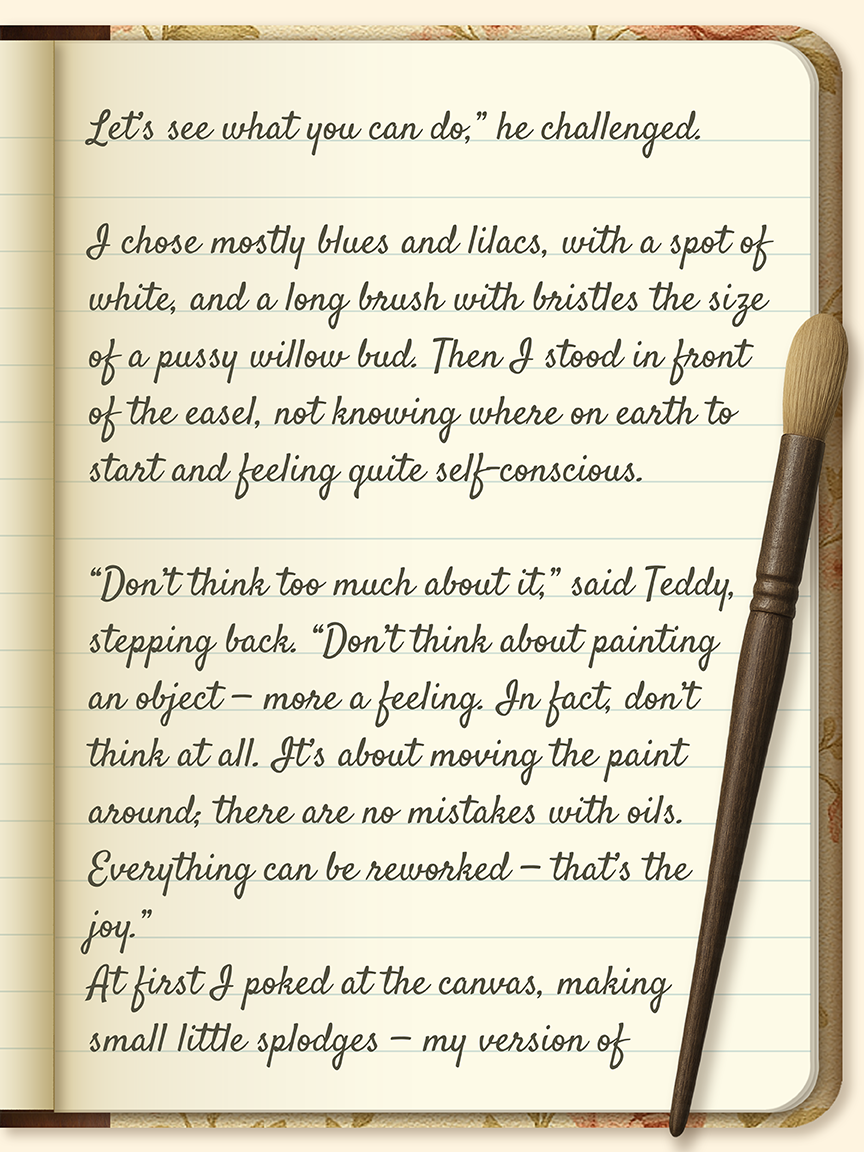 Let’s see what you can do,” he challenged.
I chose mostly blues and lilacs, with a spot of
white, and a long brush with bristles the size
of a pussy willow bud. Then I stood in front
of the easel, not knowing where on earth to
start and feeling quite self-conscious.
“Don’t think too much about it,” said Teddy,
stepping back. “Don’t think about painting
an object – more a feeling. In fact, don’t
think at all. It’s about moving the paint
around; there are no mistakes with oils.
Everything can be reworked – that’s the
joy.”
At first I poked at the canvas, making
small little splodges – my version of